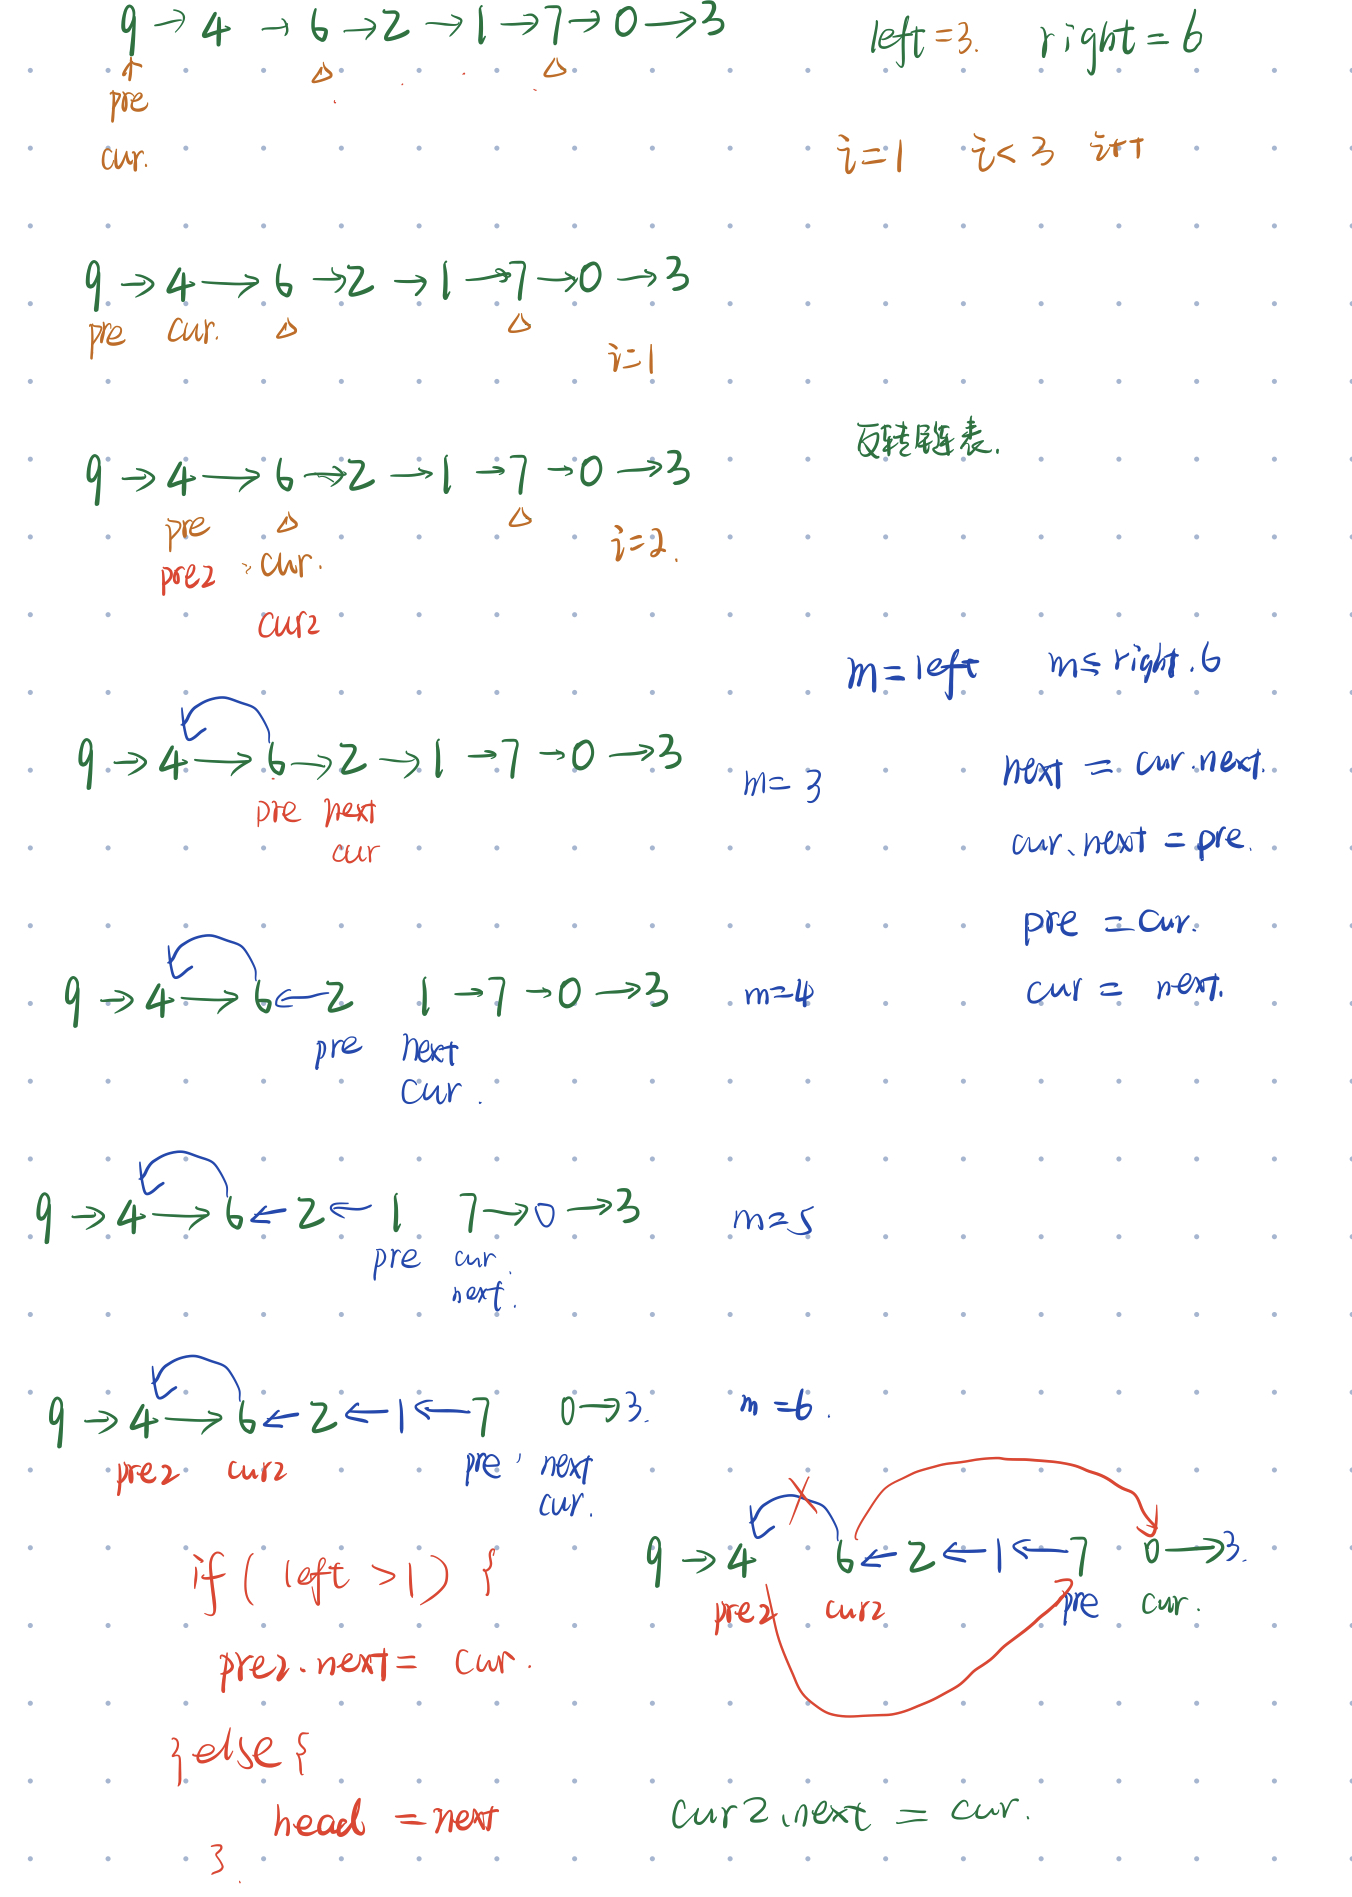 9 → 4 → 6 → 2 → 1 → 7 → 0 → 3
left = 3. right = 6
↑ △ △
pre
cur.
i = 1 i < 3 i++
9 → 4 → 6 → 2 → 1 → 7 → 0 → 3
pre cur. △ △
i = 1
反转链表.
9 → 4 → 6 → 2 → 1 → 7 → 0 → 3
pre △ △
pre2 cur. i = 2.
cur2
m = left m ≤ right. 6
9 → 4 → 6 → 2 → 1 → 7 → 0 → 3
pre next m = 3
cur
next = cur.next.
cur.next = pre.
pre = cur.
cur = next.
9 → 4 → 6 ← 2 1 → 7 → 0 → 3 m = 4
pre next
cur.
9 → 4 → 6 ← 2 ← 1 7 → 0 → 3 m = 5
pre cur.
next.
9 → 4 → 6 ← 2 ← 1 ← 7 0 → 3. m = 6.
pre2 cur2 pre next
cur.
9 → 4 6 ← 2 ← 1 ← 7 0 → 3.
pre2 cur2 pre cur.
if ( left > 1 ) {
pre2.next = cur.
} else {
head = next
}.
cur2.next = cur.